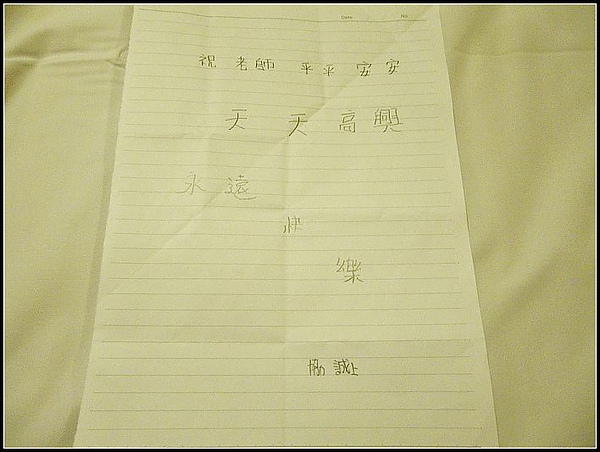 Date No
祝 老師 平平 安安
天 天 高 興
永 遠
快
樂
勛 誠上